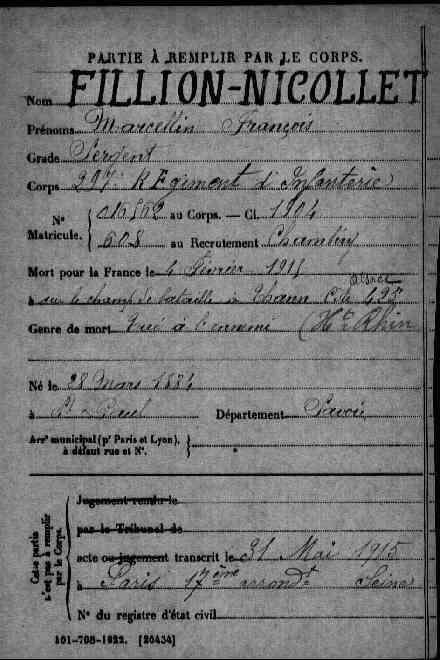 PARTIE À REMPLIR PAR LE CORPS.
Nom FILLION-NICOLLET
Prénoms Marcellin François
Grade Sergent
Corps 297e Régiment d'Infanterie
N° Matricule. au Corps. — Cl. 1904
608 au Recrutement Chambéry
Mort pour la France le 4 Février 1915
Alsace
à sur le champ de bataille à Thann Cote 425
Genre de mort Tué à l'ennemi (Ht Rhin
Né le 28 Mars 1884
à St Paul Département Savoie
Arrt municipal (pr Paris et Lyon), à défaut rue et N°.
Cette partie n'est pas à remplir par le Corps.
Jugement rendu le
par le Tribunal de
acte ou jugement transcrit le 31 Mai 1915
à Paris 17ème arrondt Seine
N° du registre d'état civil
101-708-1922. [26434]